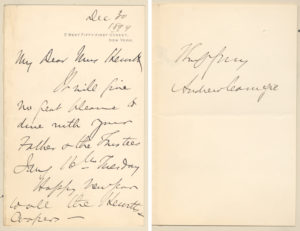 Dec 30
1894
5 WEST FIFTY-FIRST STREET,
NEW YORK.
My Dear Miss Hewitt
It will give
me great pleasure to
dine with your
Father & the Trustees
Jany 16th Tuesday
Happy New year
to all the Hewitt
Coopers —
Very truly
Andrew Carnegie